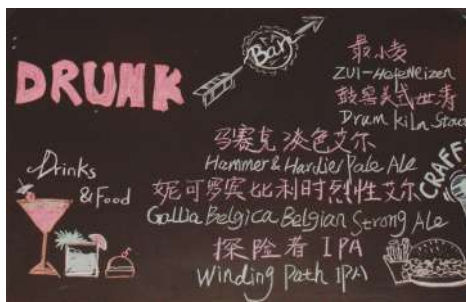 DRUNK
Bar
最小麦
ZUI-Hefeweizen
鼓窑美式世涛
Drum kiln Stout
马赛克淡色艾尔
Hammer & Hardier Pale Ale
妮可罗宾比利时烈性艾尔
Gallia Belgica Belgian Strong Ale
探险者 IPA
Winding Path IPA
Drinks
& Food
CRAFT